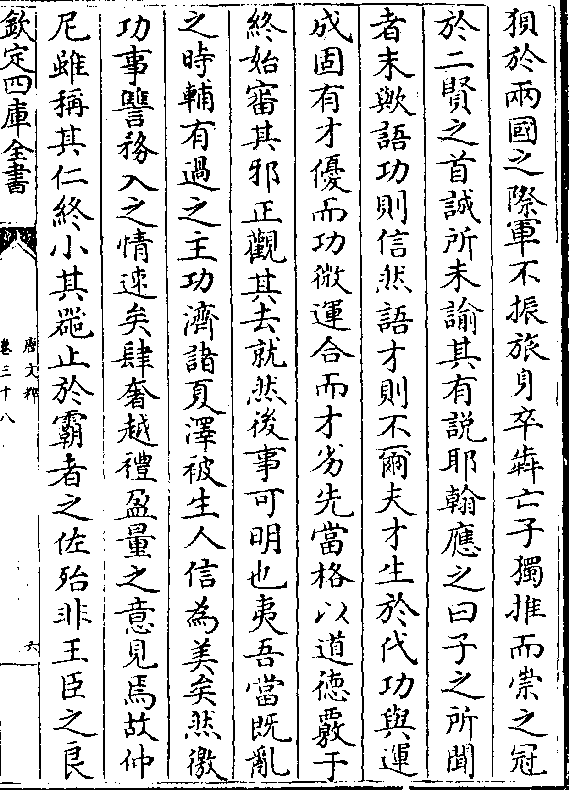 狽於兩國之際軍不振旅身卒犇亡子獨推而崇之冠
於二賢之首誠所未諭其有説耶翰應之曰子之所聞
者末歟語功則信然語才則不爾夫才生於代功與運
成固有才優而功微運合而才劣先當格以道德覈于
終始審其邪正觀其去就然後事可明也夷吾當既亂
之時輔有過之主功濟諸夏澤被生人信為美矣然徼
功事讐務入之情速矣肆奢越禮盈量之意見焉故仲
尼雖稱其仁終小其噐止於霸者之佐殆非王臣之良
欽定四庫全書
唐文粹
卷三十八
六